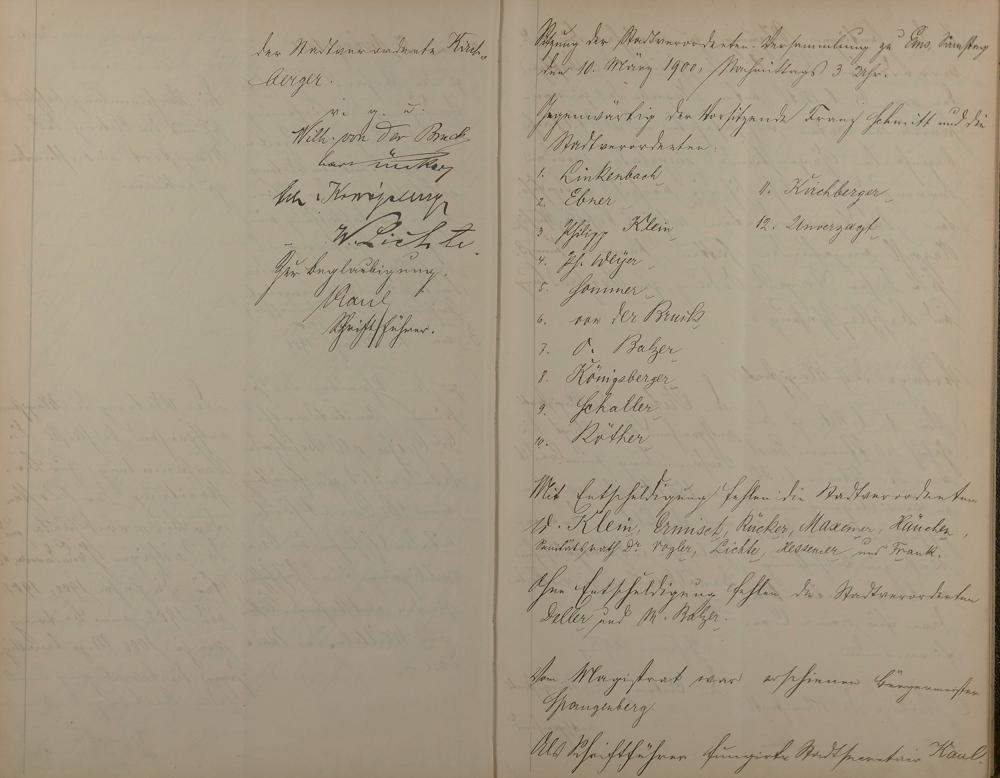 der Stadtverordnete Kirch-
berger.
v. g. u.
Wilh. von der Bruck
Königsberger
W. Lichte.
Zur Beglaubigung.
Kaul
Schriftführer.
Sitzung der Stadtverordneten-Versammlung zu Ems, Samstag
den 10. März 1900, Nachmittags 3 Uhr.
Gegenwärtig der Vorsitzende Franz Schmitt und die
Stadtverordneten:
1. Linkenbach
2. Ebner
3. Philipp Klein
4. Ph. Weyer
5. Sommer
6. von der Bruck
7. O. Balzer
8. Königsberger
9. Schaller
10. Röther
11. Kirchberger
12. Unverzagt
Mit Entschuldigung fehlen die Stadtverordneten
W. Klein, Ermisch, Rücker, Maxeiner, Häuchen,
Sanitätsrath Dr. Vogler, Lichte, Hessemer und Frank.
Ohne Entschuldigung fehlen die Stadtverordneten
Deller und M. Balzer.
Vom Magistrat war erschienen Bürgermeister
Spangenberg
Als Schriftführer fungirte Stadtsecretair Kaul.